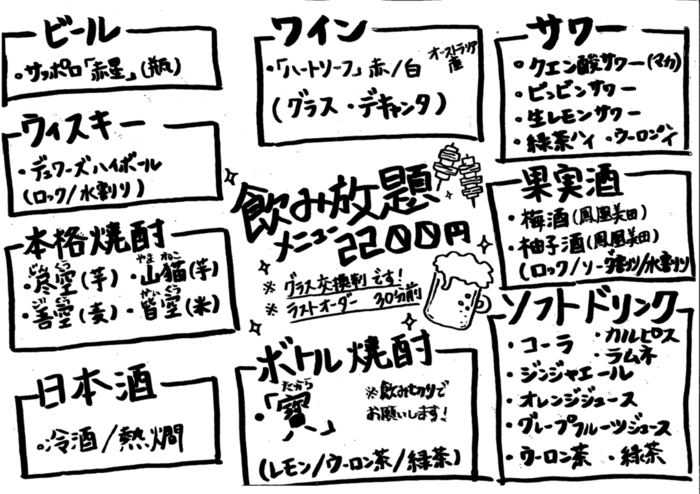 ビール
・サッポロ「赤星」(瓶)
ウィスキー
・デュワーズハイボール
(ロック/水割り)
本格焼酎
・尽空(芋)・山猫(芋)
やま ねこ
・善空(麦)・皆空(米)
日本酒
・冷酒/熱燗
ワイン
・「ハートリーフ」赤/白
オーストラリア
産
(グラス・デキャンタ)
飲み放題
メニュー
2200円
※グラス交換制です!
※ラストオーダー 30分前
ボトル焼酎
たから
・「寶」
※飲みきりで
お願いします!
(レモン/ウーロン茶/緑茶)
サワー
・クエン酸サワー(マカ)
・ビンビンサワー
・生レモンサワー
・緑茶ハイ・ウーロンハイ
果実酒
・梅酒(鳳凰美田)
・柚子酒(鳳凰美田)
(ロック/ソーダ割り/水割り)
ソフトドリンク
・コーラ
・カルピス
・ラムネ
・ジンジャエール
・オレンジジュース
・グレープフルーツジュース
・ウーロン茶 ・緑茶